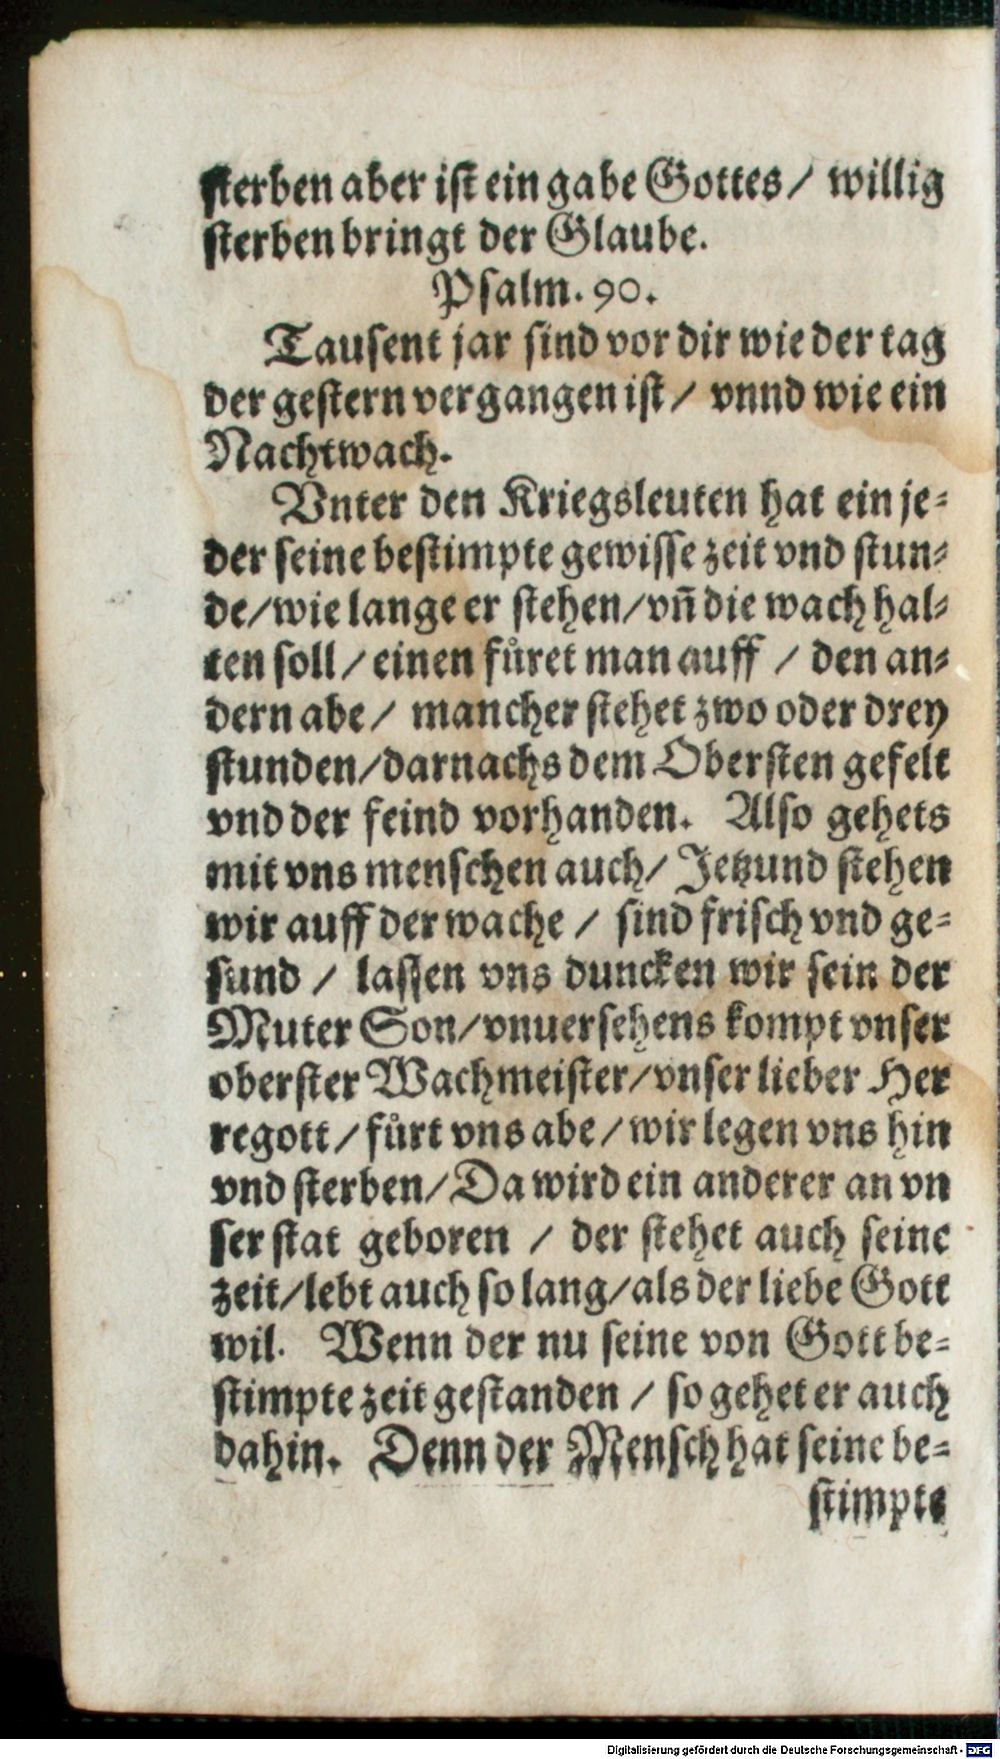 sterben aber ist ein gabe Gottes / willig
sterben bringt der Glaube.
Psalm. 90.
Tausent jar sind vor dir wie der tag
der gestern vergangen ist / vnnd wie ein
Nachtwach.
Vnter den Kriegsleuten hat ein je-
der seine bestimpte gewisse zeit vnd stun-
de/wie lange er stehen/vn̄ die wach hal-
ten soll / einen fůret man auff / den an-
dern abe / mancher stehet zwo oder drey
stunden/darnachs dem Obersten gefelt
vnd der feind vorhanden. Also gehets
mit vns menschen auch/ Jetzund stehen
wir auff der wache / sind frisch vnd ge-
sund / lassen vns duncken wir sein der
Muter Son/vnuersehens kompt vnser
oberster Wachmeister/vnser lieber Her
regott/fůrt vns abe/wir legen vns hin
vnd sterben/Da wird ein anderer an vn
ser stat geboren / der stehet auch seine
zeit/lebt auch so lang/als der liebe Gott
wil. Wenn der nu seine von Gott be-
stimpte zeit gestanden / so gehet er auch
dahin. Denn der Mensch hat seine be-
stimpte
Digitalisierung gefördert durch die Deutsche Forschungsgemeinschaft - DFG